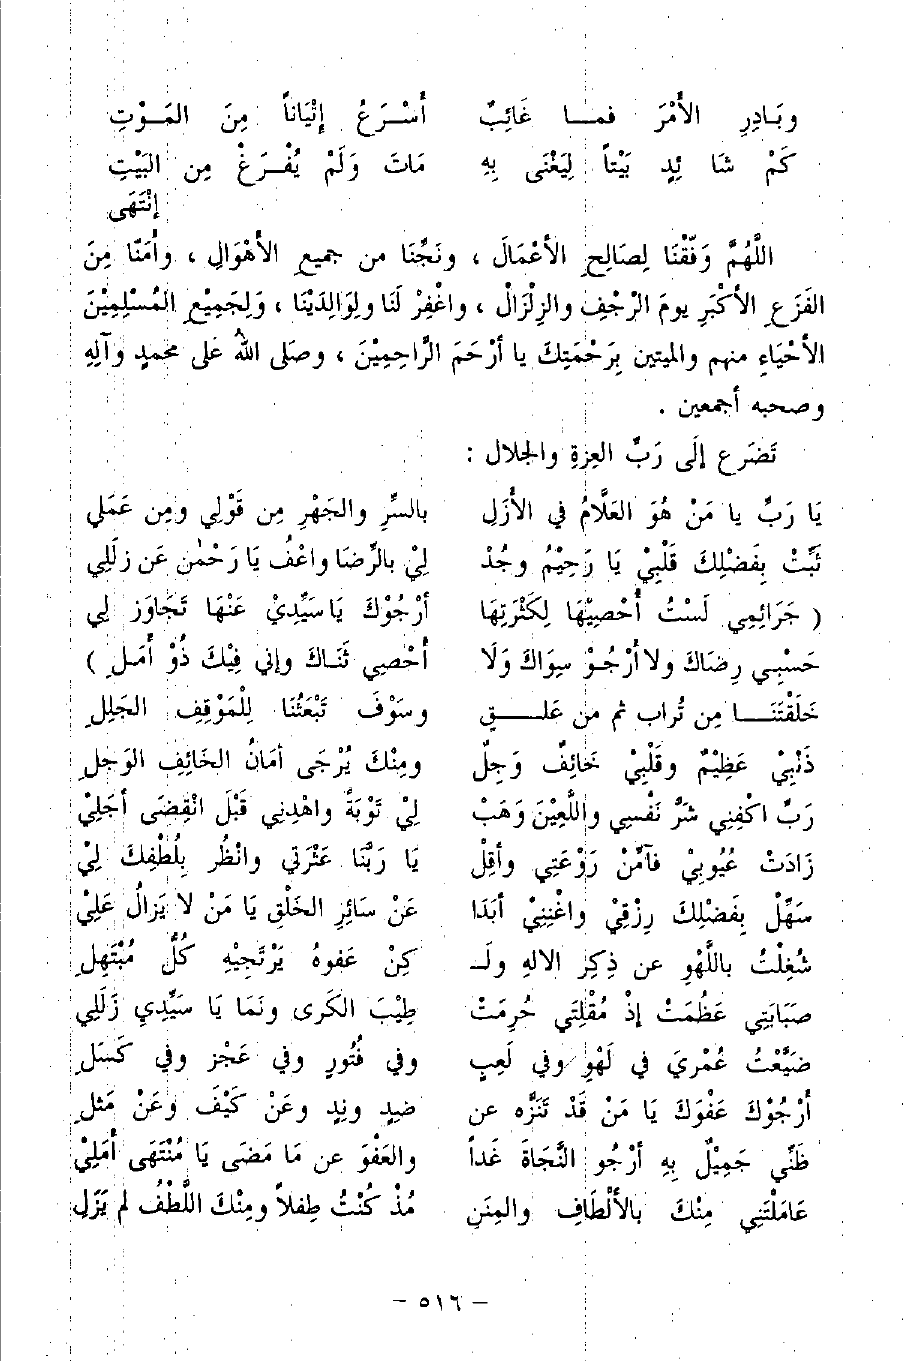 وبَادِرِ الأَمْرَ فمـا غَائِبٌ أَسْـرَعُ إِتْيَاناً مِنَ المَـوْتِ
كَمْ شَائِدٍ بَيْتاً لِيَغْنَى بِهِ مَاتَ وَلَمْ يُفْـرَغْ مِن البَيْتِ
إِنْتَهَى
اللَّهُمَّ وَفّقْنَا لِصَالِحِ الأَعْمَالَ ، ونَجِّنَا من جميع الأهْوَالِ ، وأَمِنّا مِنَ
الفَزَعِ الأكْبَرِ يومَ الرّجْفِ والزِلْزَالْ ، واغْفِرْ لَنَا ولِوَالِدَيْنَا ، وَلِجَمِيْعِ المُسْلِمِيْنَ
الأحْيَاءِ منهم والميتين بِرَحْمَتِكَ يا أرْحَمَ الرَّاحِمِيْنَ ، وصَلى اللهُ عَلى محمدٍ وآلِهِ
وصحبه أجمعين .
تَضرَع إلَى رَبِّ العِزةِ والجلال :
يَا رَبِّ يا مَنْ هُوَ العَلَّامُ في الأَزَلِ بالسِّرِ والجَهْرِ مِن قَوْلِي ومِن عَمَلي
ثَبِّتْ بِفَضْلِكَ قَلْبِيْ يَا رَحِيْمُ وجُدْ لِيْ بالرِّضَا واعْفُ يَا رَحْمٰن عَن زلَلِي
( جَرَائِمِي لَسْتُ أُحْصِيْهَا لِكَثْرَتِهَا أرْجُوْكَ يَا سَيِّدِيْ عَنْهَا تَجَاوَز لِي
حَسْبِـي رِضَاكَ ولا أرْجُـوْ سِوَاكَ وَلَا أحْصِي ثَنَـاكَ وإني فِيْكَ ذُوْ أَمَـلِ )
خَلَقْتَنَـا مِن تُراب ثم من عَلـقٍ وسَوْفَ تَبْعَثُنَا لِلْمَوْقِفِ الجَلِلِ
ذَنْبِيْ عَظِيْمٌ وقَلْبِيْ خَائِفٌ وَجِلٌ ومِنْكَ يُرْجَى أمَانُ الخَائِفِ الوَجلِ
رَبِّ اكفِنِي شَرَّ نَفْسِي واللَّعِيْنَ وَهَبْ لِيْ تَوْبَةً واهْدِنِي قَبْلَ انْقِضَى أجَلِيْ
زَادَتْ عُيُوبِيْ فآمِّنْ رَوْعَتِي وأقِلْ يَا رَبَّنَا عَثْرَتِي وانْظُر بِلُطْفِكَ لِيْ
سَهِّلْ بِفَضْلِكَ رِزْقِيْ واغْنِنِيْ أبَدَا عَنْ سَائِرِ الخَلْقِ يَا مَنْ لا يَزالُ عَلِيْ
شُغِلْتُ باللَّهْوِ عن ذِكِر الالهِ ولَـ كِنْ عَفوهُ يَرْتَجِيْهِ كُلُّ مُبْتَهِلِ
صَبَابَتِي عَظُمَتْ إذْ مُقْلِتَي حُرِمَتْ طِيْبَ الكَرى ونَمَا يَا سَيِّدِي زَلَلِي
ضَيَّعْتُ عُمْرِيَ في لَهْوٍ وفي لَعِبٍ وفي فُتُورٍ وفي عَجْز وفي كَسَلِ
أرْجُوْكَ عَفْوَكَ يَا مَنْ قَدْ تَنَزَّه عن ضِيدٍ ونِدٍ وعَنْ كَيْفَ وَعَنْ مَثلِ
ظَنِّي جَمِيْلٌ بِهِ أرْجُو النَّجَاةَ غَداً والعَفْوَ عن مَا مَضَى يَا مُنْتَهَى أمَلِيْ
عَامَلْتَنِي مِنْكَ بالأَلْطَافِ والمِنَنِ مُذْ كُنْتُ طِفلاً ومِنْكَ اللَّطْفُ لم يَزَلِ
– ٥١٦ –